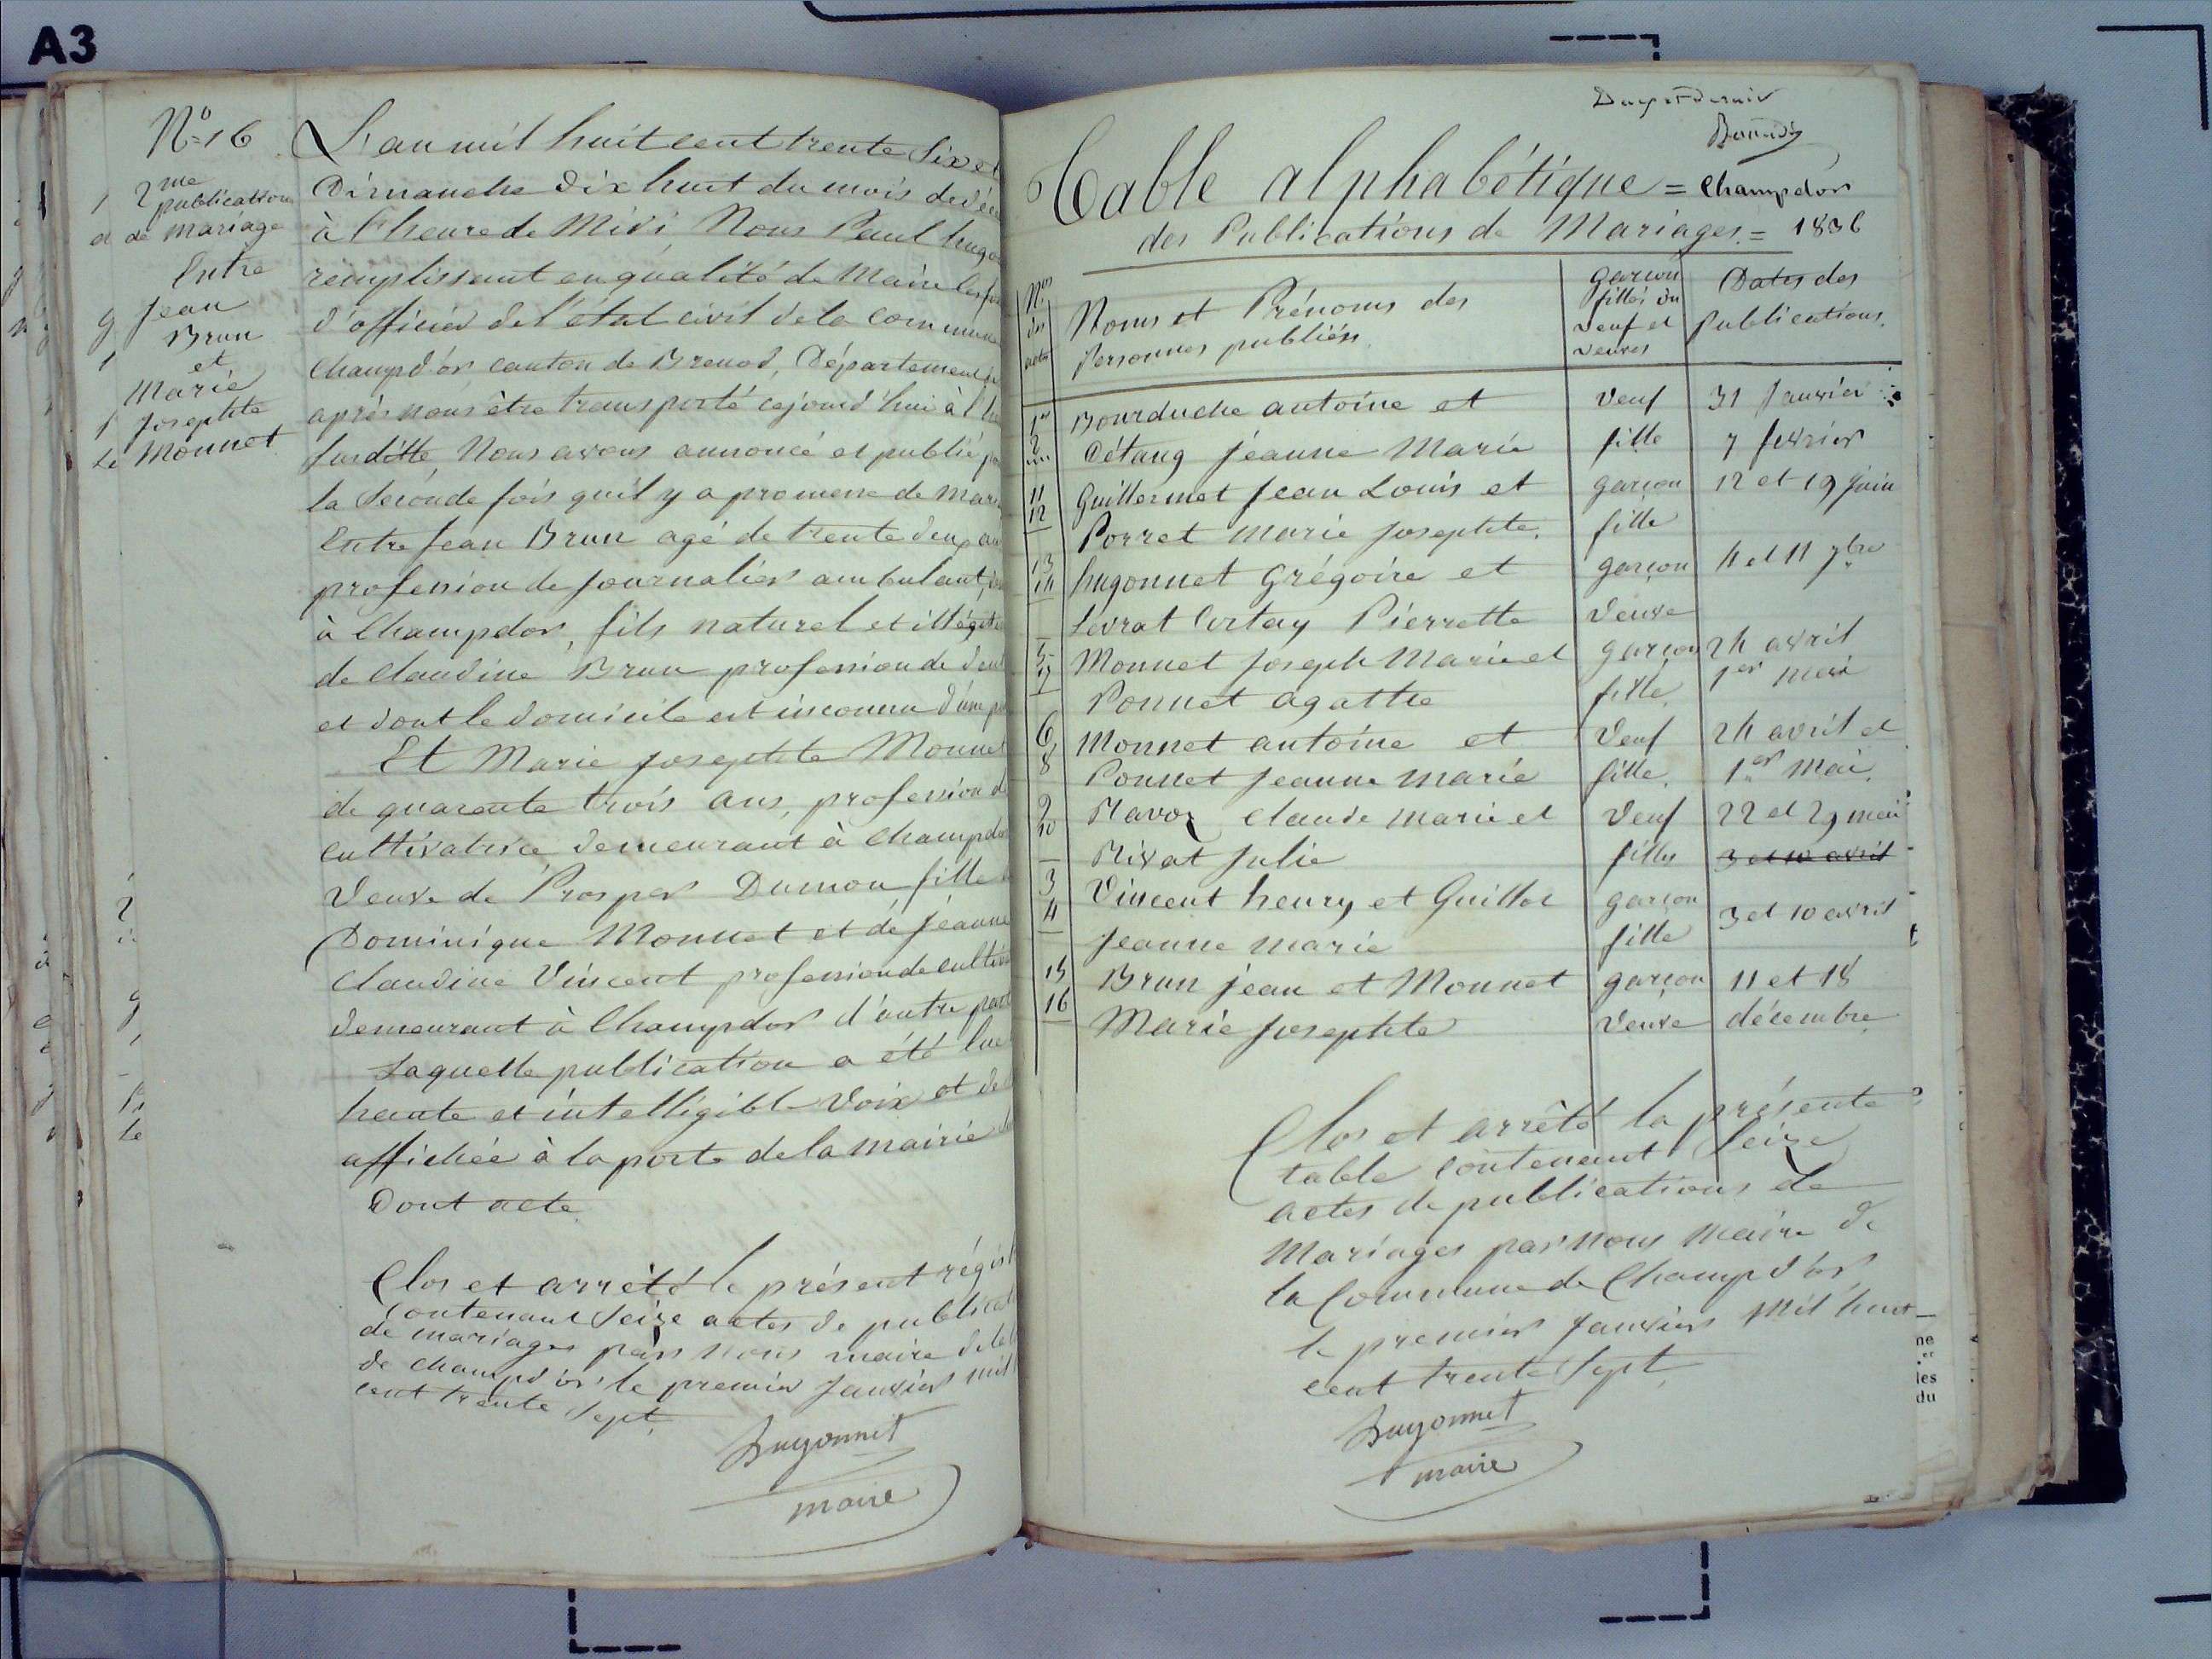 A3
N° 16
2me
publication
de mariage
Entre
Jean
Brun
et
Marie
Josephte
Monnet
L'an mil huit cent trente six et
Dimanche dix huit du mois de déc
à l'heure de Midi, Nous Paul hugo
remplissant en qualité de Maire les fo
d'officier de l'état civil de la commune
Champd'or, canton de Brenod, Département de
après nous être transporté cejourd'hui à l'he
susditte, Nous avons annoncé et publié po
la seconde fois qu'il y a promesse de mari
Entre Jean Brun agé de trente deux an
profession de journalier ambulant,
à Champdor, fils naturel et illégit
de Claudine Brun profession de
et dont le domicile est inconnu d'une p
Et Marie Josephte Monnet
de quarante trois ans, profession de
cultivatrice demeurant à Champdor
Veuve de Prosper Dumon fille
Dominique Monnet et de Jeanne
Claudine Vincent profession de cultiv
demeurant à Champdor d'autre part
Laquelle publication a été lue
haute et intelligible voix et de
affichée à la porte de la mairie
Dont acte
Clos et arrêté le présent régist
contenant seize actes de publicat
de mariages par nous maire de la
de Champd'or, le premier Janvier mil
cent trente sept.
hugonnet
maire
Table alphabétique = Champdor
des Publications de Mariages = 1836
Nos des actes
Noms et Prénoms des Personnes publiées
garçon filles ou veuf et veuves
Dates des publications.
1er Bourduche antoine et veuf 31 Janvier
2 Détang Jeanne Marie fille 7 fevrier
11 Guillermet Jean Louis et garçon 12 et 19 juin
12 Porret marie Josephte. fille
13 hugonnet Grégoire et garçon 4 et 11 7bre
14 Levrat Cortay Pierrette veuve
5 Monnet Joseph Marie et garçon 24 avril
7 Ponnet agathe fille 1er mai
6 Monnet antoine et veuf 24 avril et
8 Ponnet Jeanne marie fille. 1er mai.
9 Ravoz Claude marie et veuf 22 et 29 mai
10 Rivat Julie fille 3 et 10 avril
3 Vincent henry et Guillot garçon 3 et 10 avril
4 Jeanne marie fille
15 Brun Jean et Monnet garçon 11 et 18
16 Marie Josephte veuve décembre
Clos et arrêté la présente
table contenant seize
actes de publications de
Mariages par nous maire de
la Commune de Champd'or
le premier Janvier mil huit
cent trente sept,
hugonnet
maire
ne
et
les
du